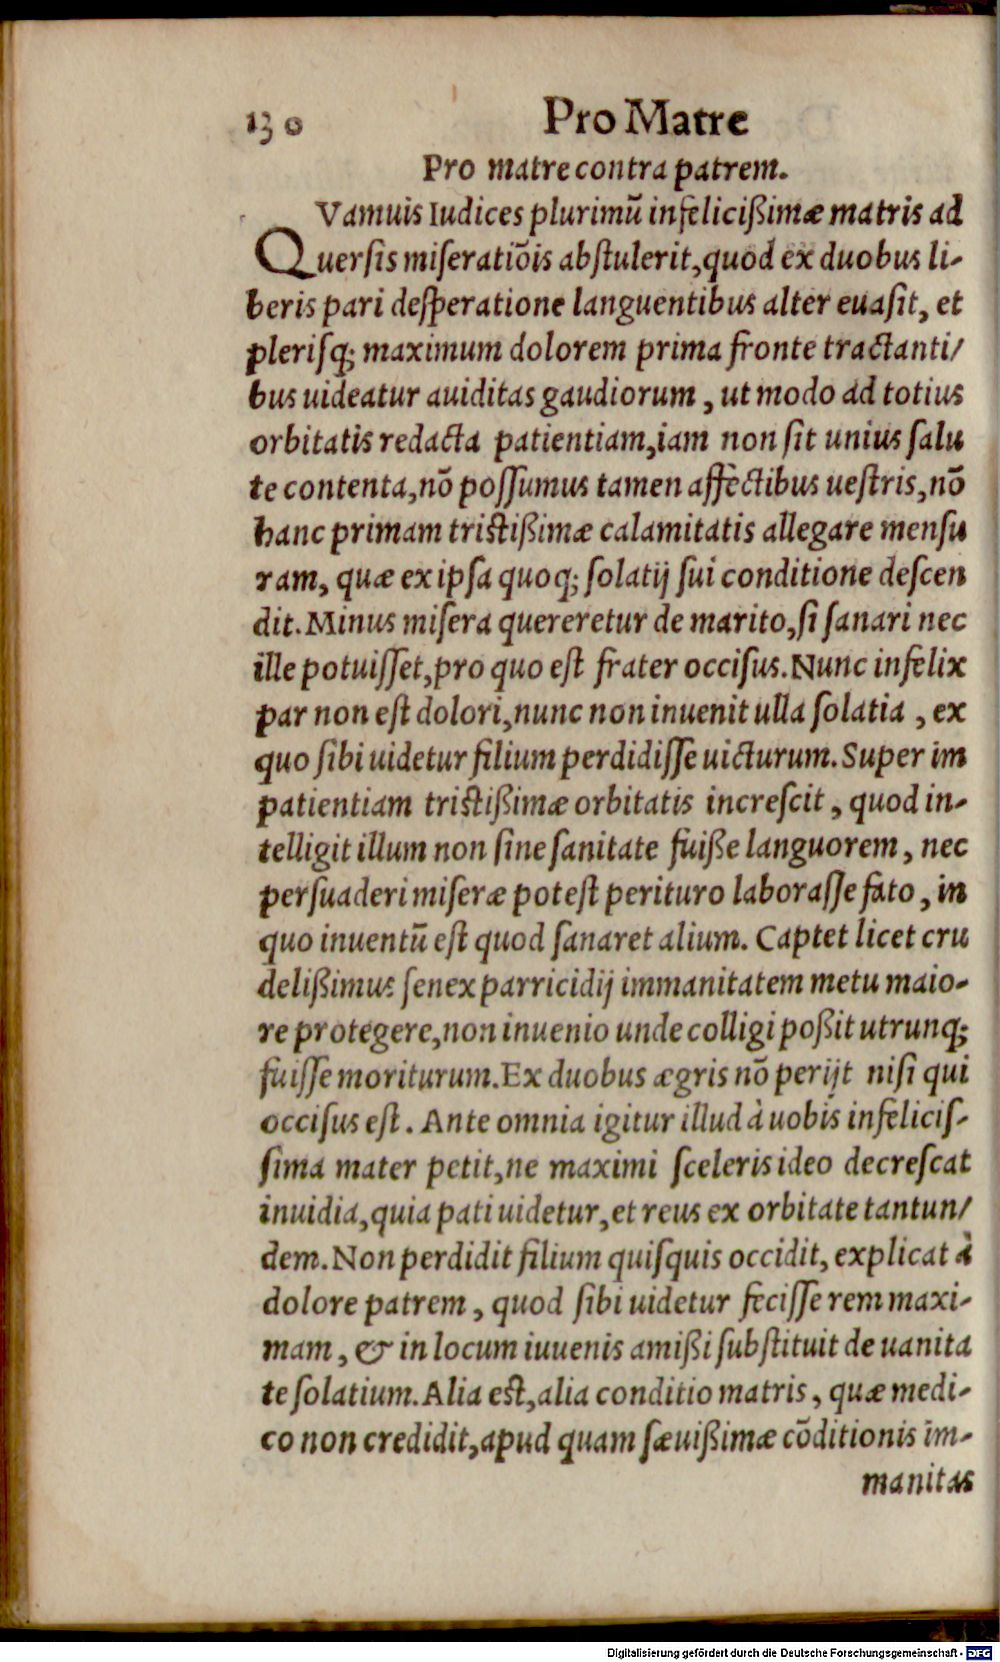 130 Pro Matre
Pro matre contra patrem.
QVamuis Iudices plurimũ infelicißimæ matris ad
uersis miseratiõis abstulerit, quod ex duobus li-
beris pari desperatione languentibus alter euasit, et
plerisq; maximum dolorem prima fronte tractanti/
bus uideatur auiditas gaudiorum, ut modo ad totius
orbitatis redacta patientiam, iam non sit unius salu
te contenta, nõ possumus tamen affectibus uestris, nõ
hanc primam tristißimæ calamitatis allegare mensu
ram, quæ ex ipsa quoq; solatij sui conditione descen
dit. Minus misera quereretur de marito, si sanari nec
ille potuisset, pro quo est frater occisus. Nunc infelix
par non est dolori, nunc non inuenit ulla solatia, ex
quo sibi uidetur filium perdidisse uicturum. Super im
patientiam tristißimæ orbitatis increscit, quod in-
telligit illum non sine sanitate fuiße languorem, nec
persuaderi miseræ potest perituro laborasse fato, in
quo inuentũ est quod sanaret alium. Captet licet cru
delißimus senex parricidij immanitatem metu maio-
re protegere, non inuenio unde colligi poßit utrunq;
fuisse moriturum. Ex duobus ægris nõ perijt nisi qui
occisus est. Ante omnia igitur illud à uobis infelicis-
sima mater petit, ne maximi sceleris ideo decrescat
inuidia, quia pati uidetur, et reus ex orbitate tantun/
dem. Non perdidit filium quisquis occidit, explicat à
dolore patrem, quod sibi uidetur fecisse rem maxi-
mam, & in locum iuuenis amißi substituit de uanita
te solatium. Alia est, alia conditio matris, quæ medi-
co non credidit, apud quam sæuißimæ cõditionis im-
manitas
Digitalisierung gefördert durch die Deutsche Forschungsgemeinschaft - DFG